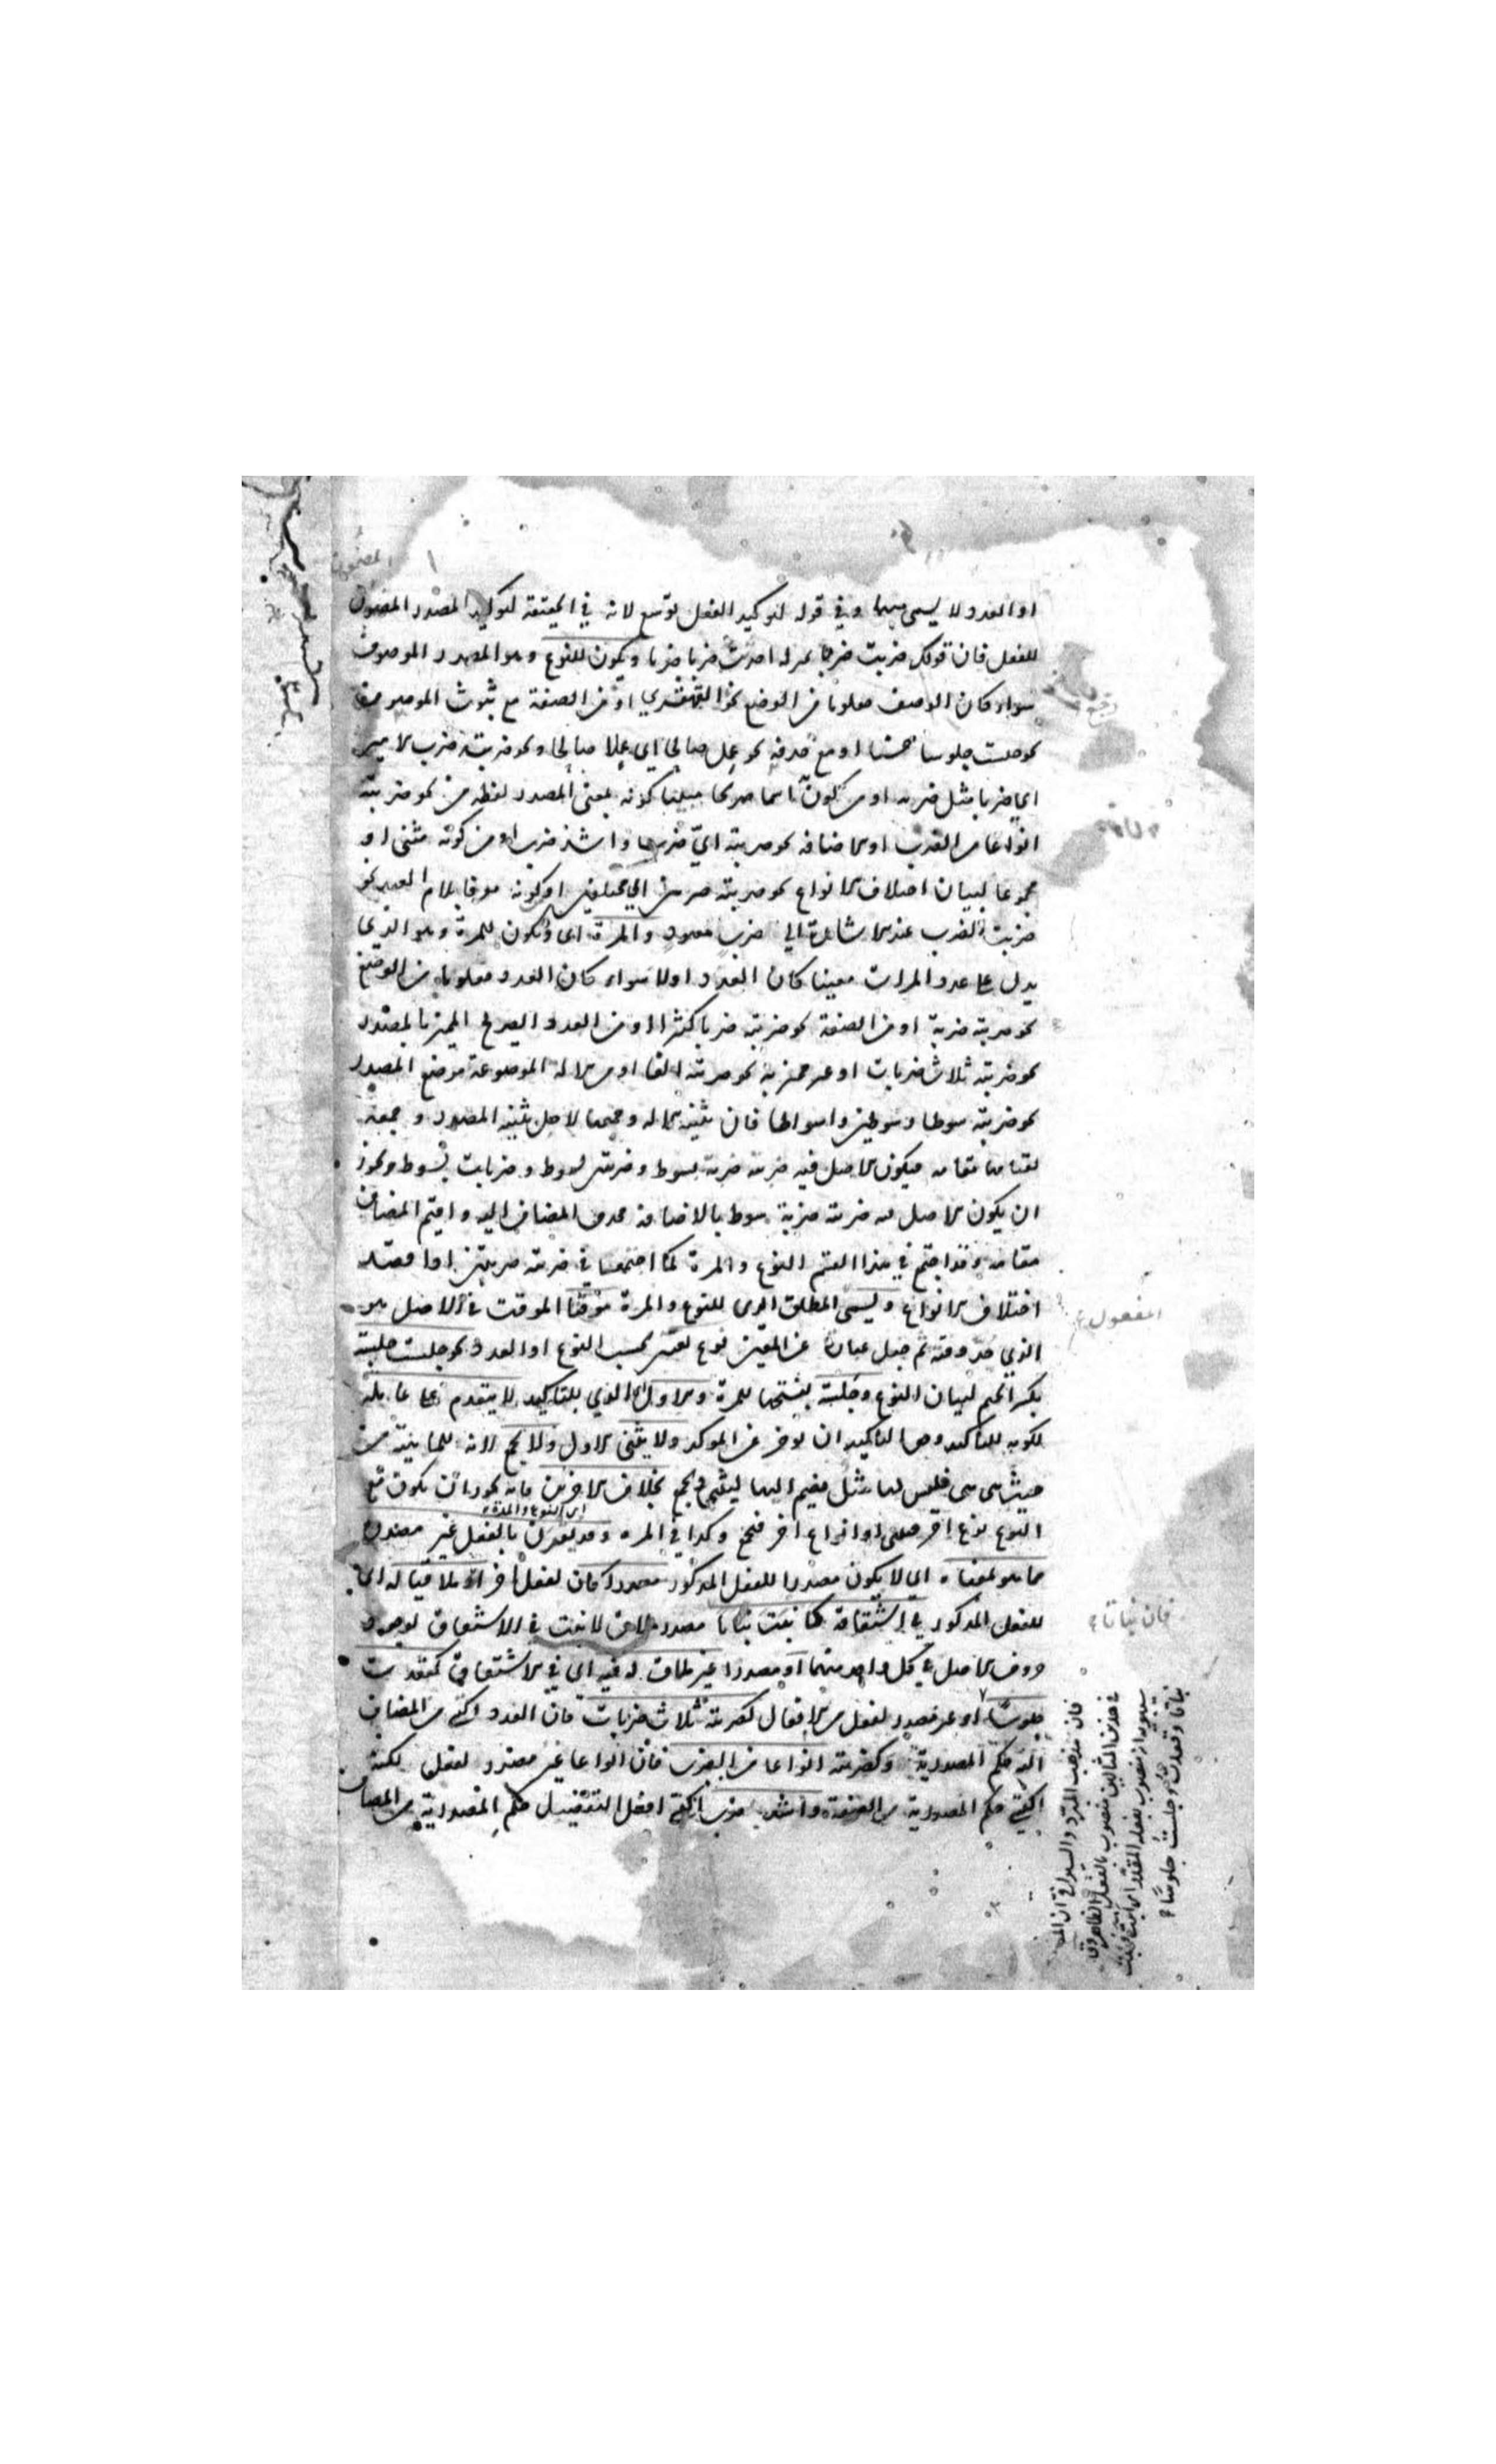 او العدد ولا يسمى مبهما وفي قوله لتوكيد الفعل توسع لانه في الحقيقة لتوكيد المصدر المضمون
للفعل فان قولك ضربت ضربا بمنزلة احدثت ضربا ضربا ويكون للنوع وهو المصدر الموصوف
سواء كان الوصف معلوما من الوضع نحو القهقرى او من الصفة مع ثبوت الموصوف
نحو جلست جلوسا حسنا او مع حذفه نحو عمل صالحا اى عملا صالحا ونحو ضربته ضرب الامير
اى ضربا مثل ضربه او من كونه اسما صريحا مبينا كونه بمعنى المصدر لفظه من نحو ضربته
انواعا من الضرب او الاضافة نحو ضربته اىّ ضرب واشد ضرب او من كونه مثنى او
مجموعا لبيان اختلاف الانواع نحو ضربته ضربتين اى مختلفين او كونه معرفا بلام العهد نحو
ضربت الضرب عند الاشارة الى ضرب معهود والمرة اى ويكون للمرة وهو الذى
يدل على عدد المرات معينا كان العدد اولا سواء كان العدد معلوما من الوضع
نحو ضربته ضربة او من الصفة نحو ضربته ضربا كثيرا او من العدد الصريح المميز بالمصدر
نحو ضربته ثلاث ضربات او غير مميز به نحو ضربته الفا او من الالة الموضوعة موضع المصدر
نحو ضربته سوطا وسوطين واسواطا فان تثنية الالة وجمعها لاجل تثنية المصدر وجمعه
لقيامها مقامه فيكون الاصل فيه ضربته ضربة بسوط وضربتين بسوط وضربات بسوط ويجوز
ان يكون الاصل فيه ضربته ضربة سوط بالاضافة فحذف المضاف اليه واقيم المضاف
مقامه وقد اجتمع في هذا القسم النوع والمرة كما اجتمعا في ضربته ضربتين اذا قصد
اختلاف الانواع ويسمى المطلق الذى للنوع والمرة موقتا الموقت في الاصل هو
الذي حدّ وقته ثم جعل عبارة عن المعين نوع تعين بحسب النوع او العدد نحو جلست جلسة
بكسر الجيم لبيان النوع وجلسة بفتحها للمرة والاول اى الذي للتاكيد لا يتقدم على عامله
لكونه للتاكيد وحق التاكيد ان يوخر عن الموكد ولا يثنى الاول ولا يجمع لانه للماهية من
حيث هى هى فليس لها مثل فيضم اليها ليثنى ويجمع بخلاف الاخرين فانه يجوز ان يكون مع
اى النوع والمرة
النوع نوع اخر فيثنى او انواع اخر فيجمع وكذا في المرة وقد يقدرن بالفعل غير مصدره
مما هو بمعناه اى لا يكون مصدرا للفعل المذكور مصدرا كان لفعل اخر او ملاقيا له اى
للفعل المذكور في اشتقاقه كانبت نباتا مصدر ملاق لانبت في الاشتقاق لوجود
حروف الاصل في كل واحد منهما او مصدرا غير ملاق له فيه اى في الاشتقاق كقعدت
جلوسا او غير مصدر لفعل من الافعال كضربته ثلاث ضربات فان العدد اكتسى من المضاف
اليه حكم المصدرية وكضربته انواعا من الضرب فان انواعا غير مصدر لفعل لكنه
اكتسى حكم المصدرية من الصفة واشد ضرب اكتسى افعل التفضيل حكم المصدرية من المضاف
المفعول
فان نباتا
فان مذهب المبرد والسيرافى ان
في هذين المثالين منصوب بالفعل الظاهر وق
سيبويه انه منصوب بفعله المقدر اى انبت فنبت
نباتا وقعدت وجلست جلوسا